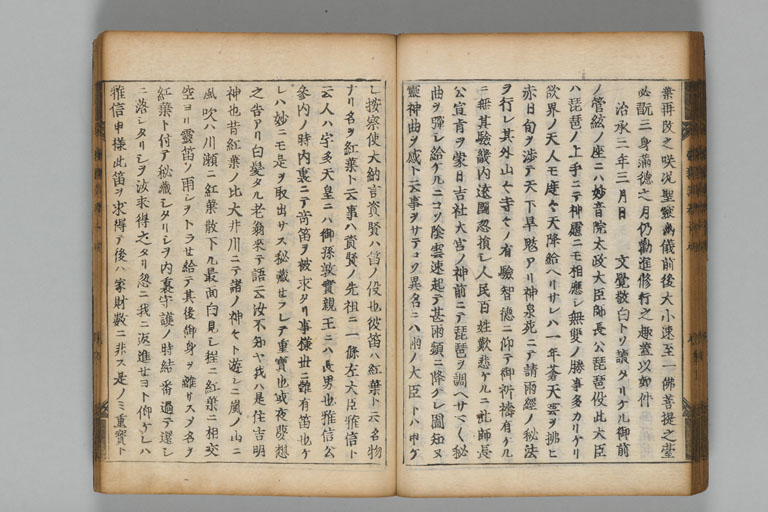 葉再改之咲況聖霊幽儀前後大小速至一佛菩提之臺
必翫三身満徳之月仍勧進修行之趣蓋以如件
治承三年三月日　文覚敬白トソ讀タリケル御前
ノ管絃ノ座ニハ妙音院太政大臣師長公琵琶役此大臣
ハ琵琶ノ上手ニテ神慮ニモ相應シ無雙ノ勝事多カリケリ
欲界ノ天人モ座ヤヽ天降給ヘリサレハ一年蒼天雲ヲ掃ヒ
赤日旬ヲ渉テ天下旱魃アリ神泉苑ニテ請雨經ノ秘法
ヲ行レ其外山々寺々ノ有驗智徳ニ仰テ御祈禱有ケル
ニ無其驗畿内遠國忽損シ人民百姓歎悲ケルニ此師長
公宣旨ヲ蒙日吉社大宮ノ神前ニテ琵琶ヲ調ヘサマ〱秘
曲ヲ彈シ給ケルニコソ陰雲速起テ甚雨頻ニ降クレ國知ヌ
靈神曲ヲ感ト云事ヲサテコソ異名ニハ雨ノ大臣トハ申ケ
シ按察使大納言資賢ハ笛ノ役也彼笛ハ紅葉ト云名物
ナリ名ヲ紅葉ト云事ハ資賢ノ先祖ニ一條左大臣雅信ト
云人ハ宇多天皇ニハ御孫敦實親王ニハ長男也雅信公
參内ノ時内裏ニテ笛ヲ被求タリ事様世ニ難有笛也ケ
レハ妙ニモ是ヲ取出サス秘藏セラレテ重寶也或夜夢想
之告アリ白髪タル老翁來テ語云汝不知ヤ我ハ是住吉明
神也昔紅葉ノ比大井川ニテ諸ノ神々ト遊シニ嵐ノ山ニ
風吹ハ川瀬ニ紅葉散下ル最面白見シ程ニ紅葉ニ相交
空ヨリ靈笛ノ雨シヲトラセ給テ其後御身ヲ離サス名ヲ
紅葉ト付テ秘藏シタリシヲ内裏守護ノ時結番過テ還シ
ニ落シタリシヲ汝求得之タリ忽ニ我ニ返進セヨト仰ケレハ
雅信申様此笛ヲ求得テ後ハ家財數ニ非ス是ノミ重寶ト